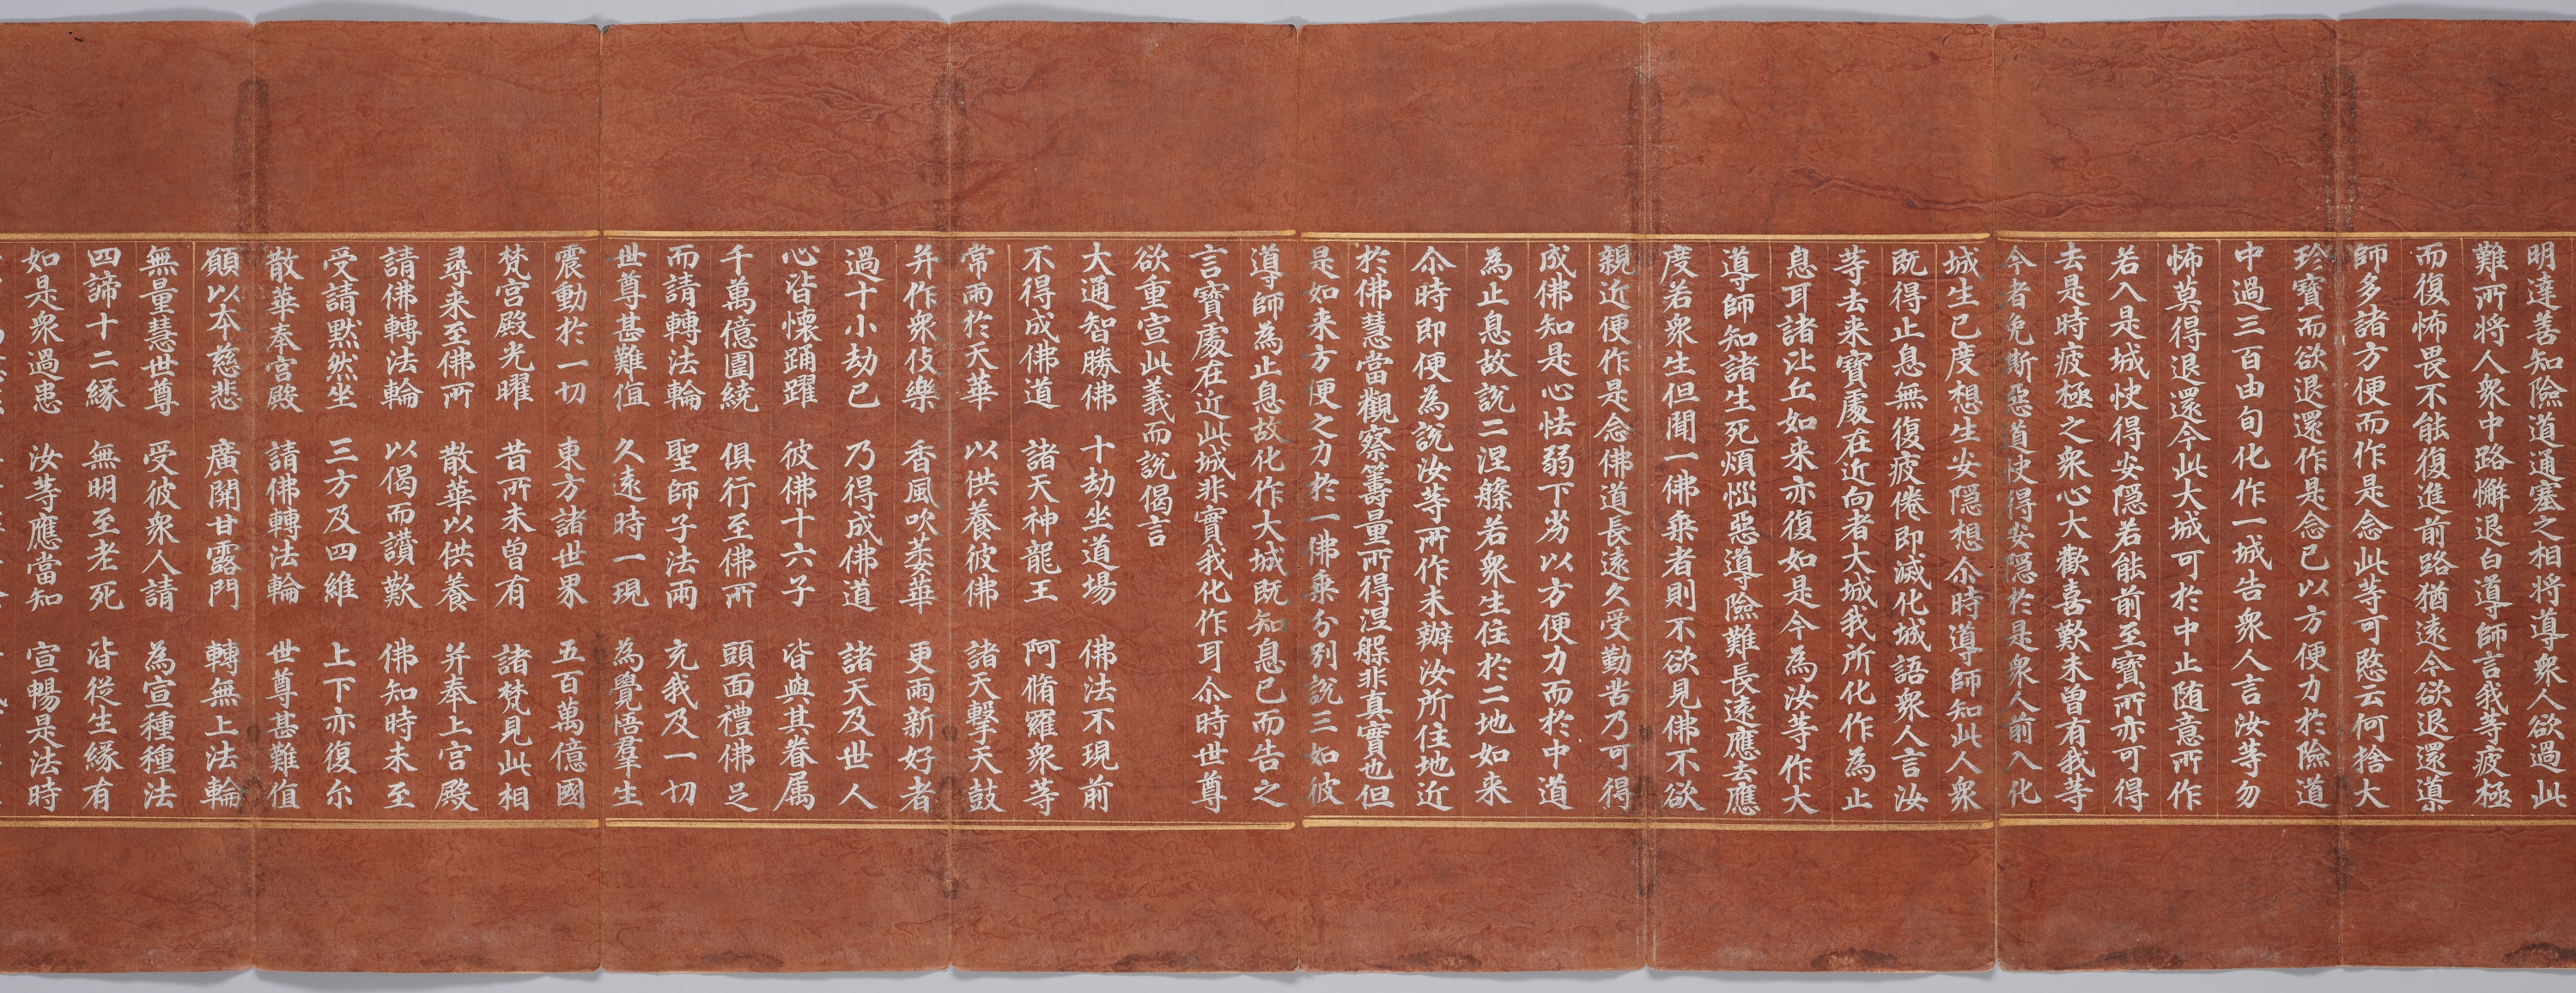 明達善知險道通塞之相將導衆人欲過此
難所將人衆中路懈退白導師言我等疲極
而復怖畏不能復進前路猶遠今欲退還導
師多諸方便而作是念此等可愍云何捨大
珍寶而欲退還作是念已以方便力於險道
中過三百由旬化作一城告衆人言汝等勿
怖莫得退還今此大城可於中止随意所作
若入是城快得安隱若能前至寶所亦可得
去是時疲極之衆心大歡喜歎未曾有我等
今者免斯惡道快得安隱於是衆人前入化
城生已度想生安隱想尒時導師知此人衆
既得止息無復疲倦即滅化城語衆人言汝
等去来寶處在近向者大城我所化作為止
息耳諸比丘如来亦復如是今為汝等作大
導師知諸生死煩惱惡導險難長遠應去應
度若衆生但聞一佛乘者則不欲見佛不欲
親近便作是念佛道長遠久受勤苦乃可得
成佛知是心怯弱下劣以方便力而於中道
為止息故說二涅槃若衆生住於二地如来
尒時即便為說汝等所作未辦汝所住地近
於佛慧當觀察籌量所得涅槃非真實也但
是如来方便之力於一佛乘分别說三如彼
導師為止息故化作大城既知息已而告之
言寶處在近此城非實我化作耳尒時世尊
欲重宣此義而說偈言
大通智勝佛　十劫坐道場　佛法不現前
不得成佛道　諸天神龍王　阿脩羅衆等
常雨於天華　以供養彼佛　諸天擊天鼓
并作衆伎樂　香風吹萎華　更雨新好者
過十小劫已　乃得成佛道　諸天及世人
心皆懷踊躍　彼佛十六子　皆與其眷属
千萬億圍繞　俱行至佛所　頭面禮佛足
而請轉法輪　聖師子法雨　充我及一切
世尊甚難值　久遠時一現　為覺悟羣生
震動於一切　東方諸世界　五百萬億國
梵宫殿光曜　昔所未曾有　諸梵見此相
尋来至佛所　散華以供養　并奉上宫殿
請佛轉法輪　以偈而讃歎　佛知時未至
受請默然坐　三方及四維　上下亦復尒
散華奉宫殿　請佛轉法輪　世尊甚難值
願以本慈悲　廣開甘露門　轉無上法輪
無量慧世尊　受彼衆人請　為宣種種法
四諦十二縁　無明至老死　皆從生縁有
如是衆過患　汝等應當知　宣暢是法時